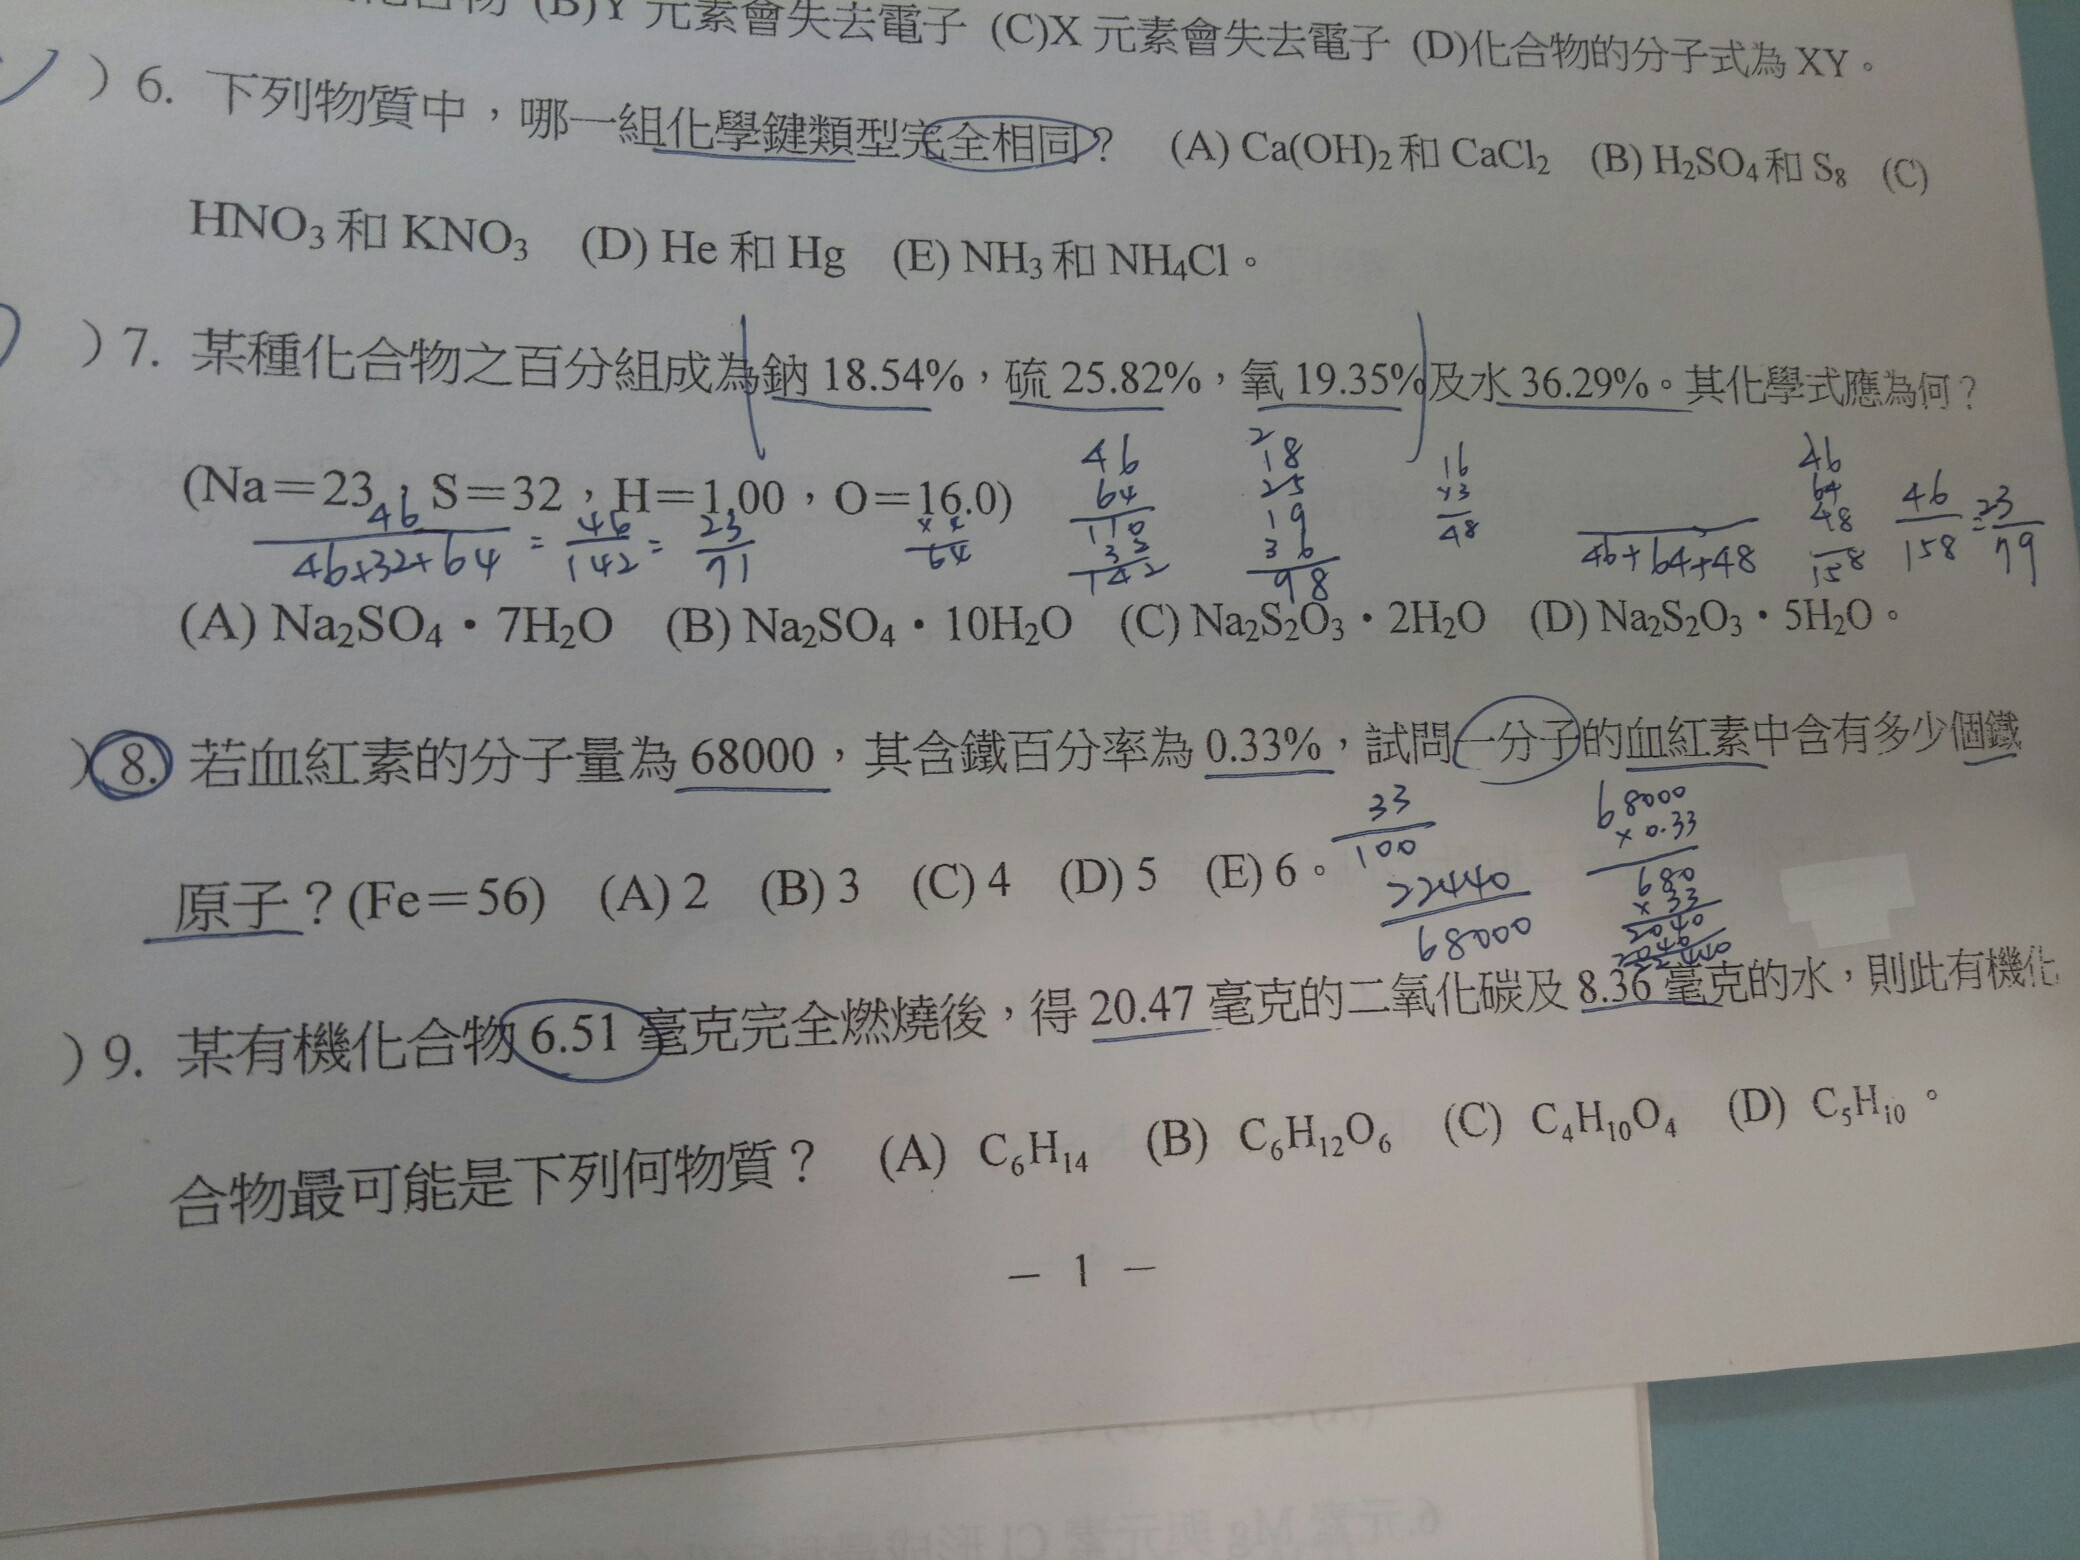 化合物 (B)Y 元素會失去電子 (C)X 元素會失去電子 (D)化合物的分子式為 XY。
)6. 下列物質中，哪一組化學鍵類型完全相同？ (A) Ca(OH)₂和 CaCl₂ (B) H₂SO₄和 S₈ (C)
HNO₃和 KNO₃ (D) He 和 Hg (E) NH₃和 NH₄Cl。
)7. 某種化合物之百分組成為鈉 18.54%，硫 25.82%，氧 19.35%及水 36.29%。其化學式應為何？
(Na＝23，S＝32，H＝1.00，O＝16.0)
46
64
110
32
142
2
18
25
19
36
98
16
×3
48
46
64
48
158
46/158 = 23/79
46/46+32+64 = 46/142 = 23/71
×4
64
46+64+48
(A) Na₂SO₄·7H₂O (B) Na₂SO₄·10H₂O (C) Na₂S₂O₃·2H₂O (D) Na₂S₂O₃·5H₂O。
)8. 若血紅素的分子量為 68000，其含鐵百分率為 0.33%，試問一分子的血紅素中含有多少個鐵
原子？(Fe＝56) (A) 2 (B) 3 (C) 4 (D) 5 (E) 6。
33
100
22440
68000
68000
× 0.33
680
× 33
2040
)9. 某有機化合物 6.51 毫克完全燃燒後，得 20.47 毫克的二氧化碳及 8.36 毫克的水，則此有機化
合物最可能是下列何物質？ (A) C₆H₁₄ (B) C₆H₁₂O₆ (C) C₄H₁₀O₄ (D) C₅H₁₀。
－ 1 －